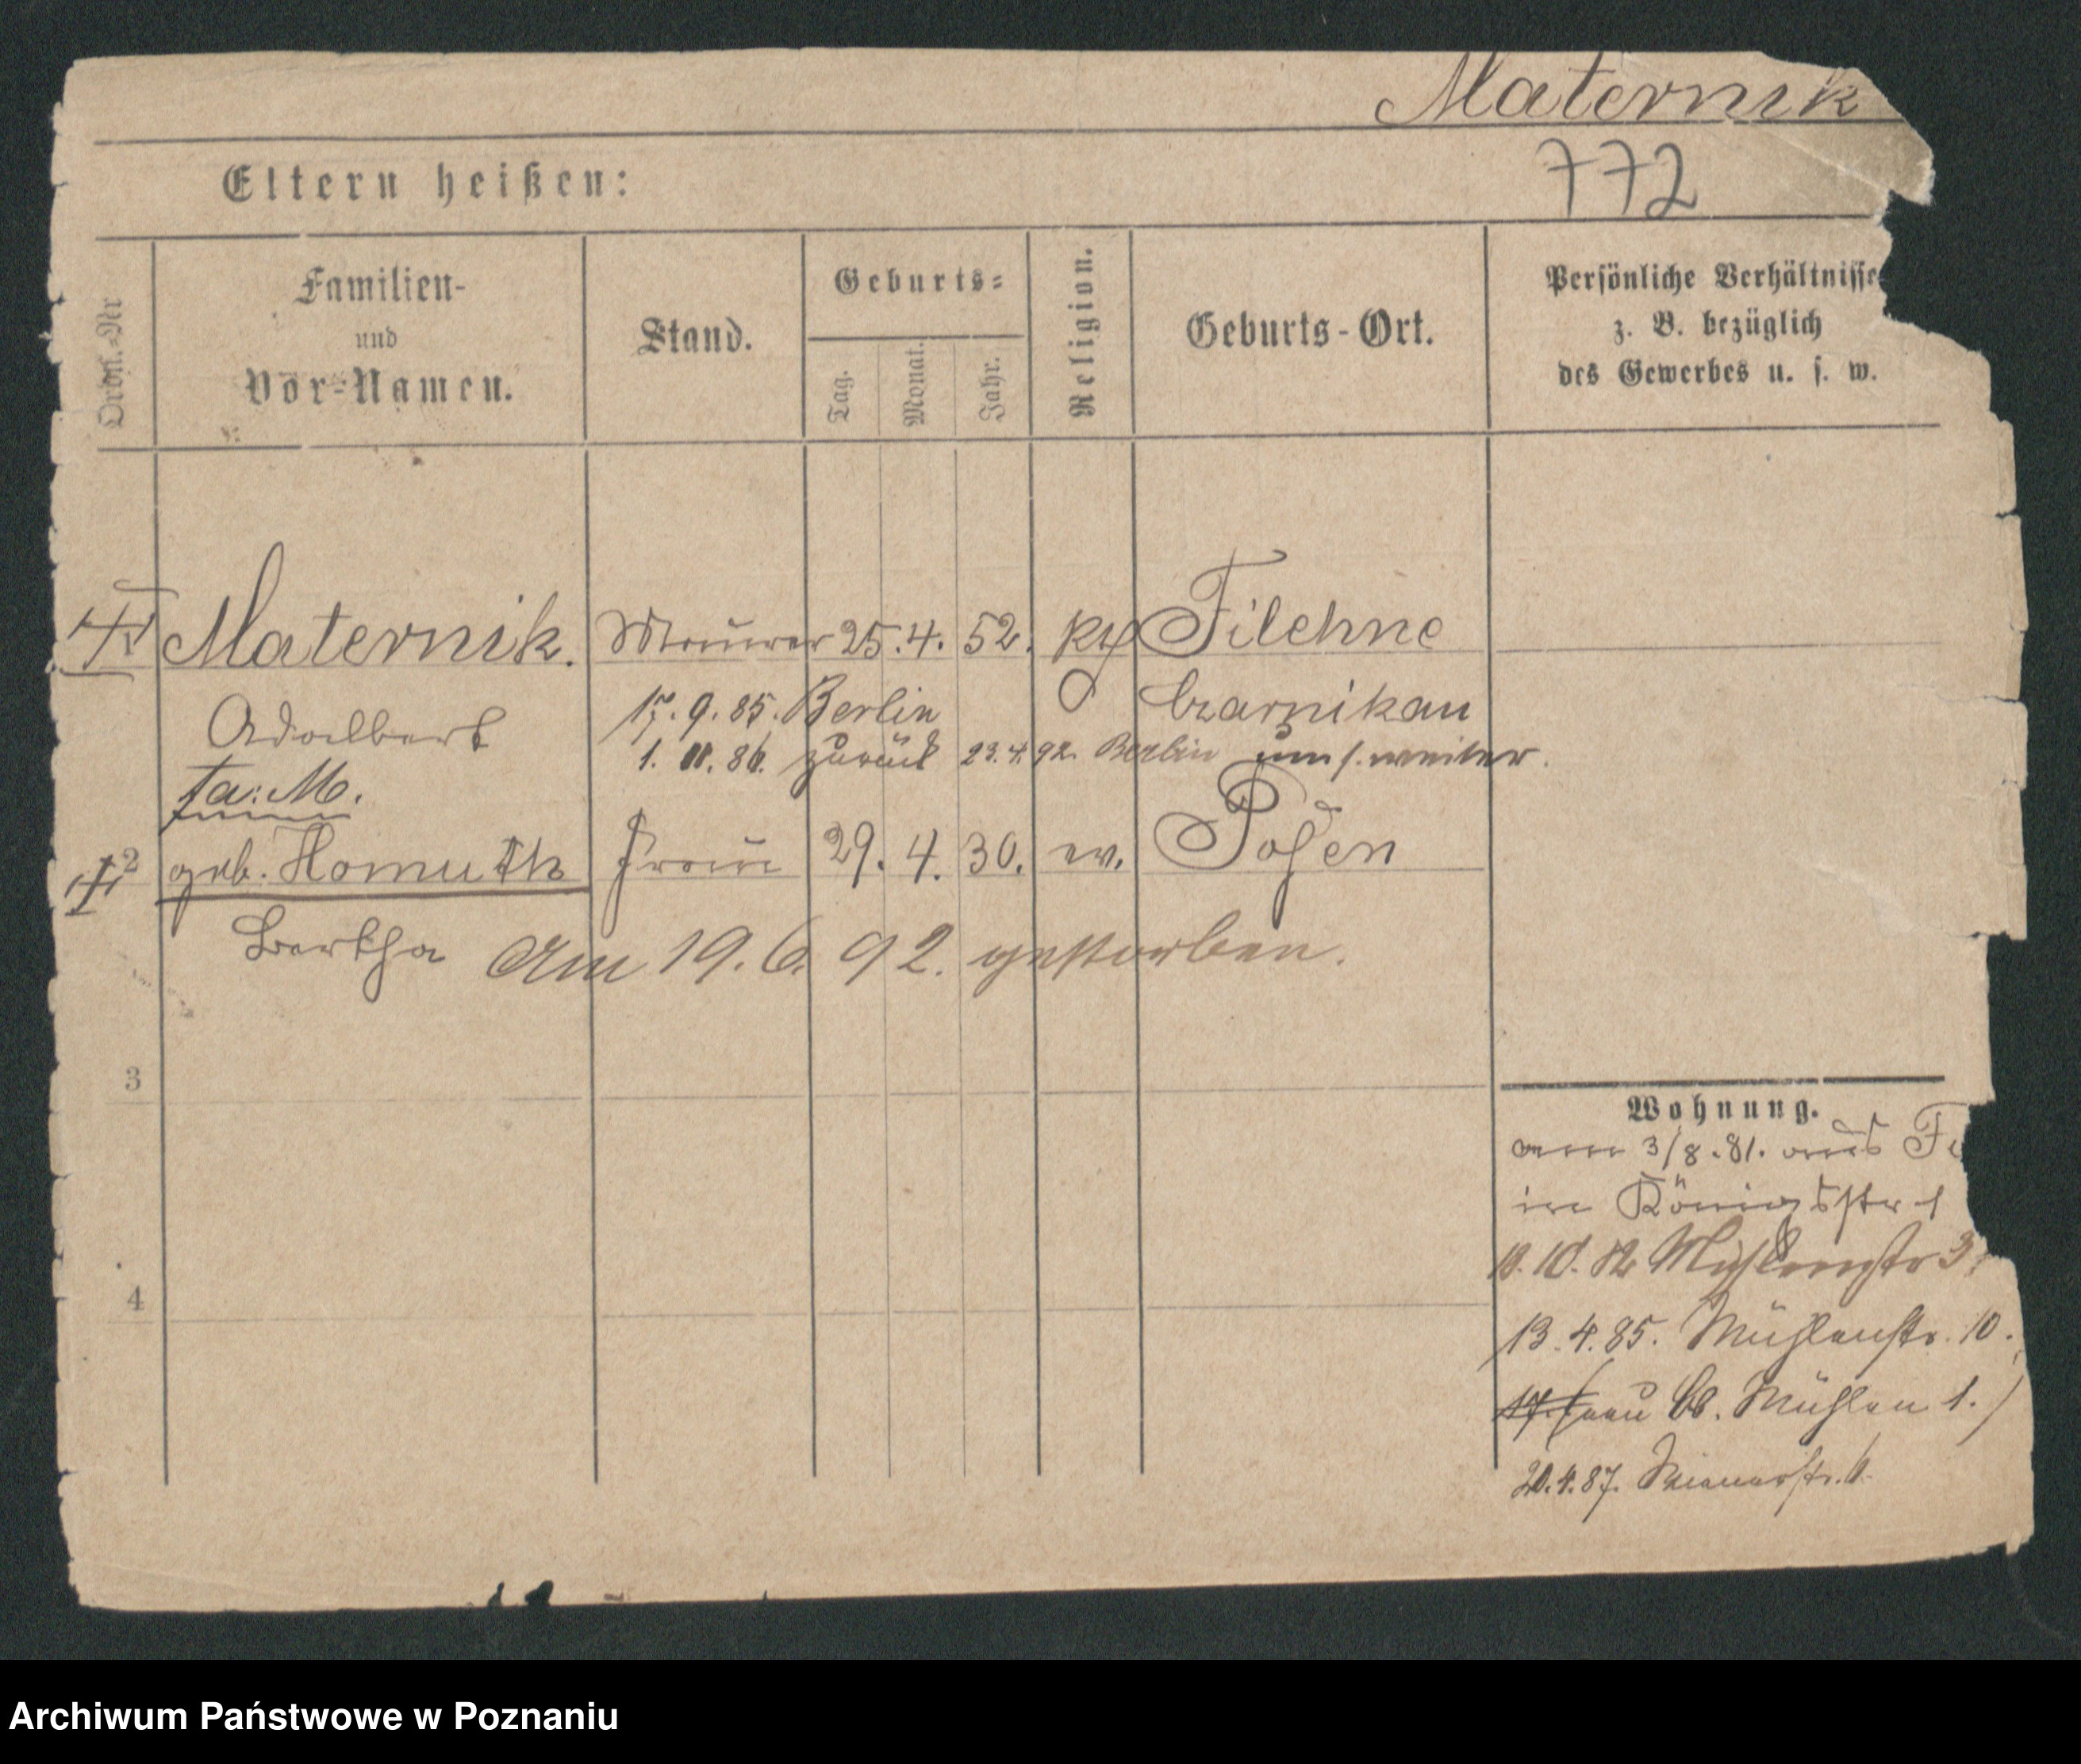 Maternik
Eltern heißen:
772
Ordn.-Nr
Familien-
und
Vor-Namen.
Stand.
Geburts-
Tag.
Monat.
Jahr.
Religion.
Geburts-Ort.
Persönliche Verhältnisse
z. B. bezüglich
des Gewerbes u. s. w.
Maternik. Maurer 25. 4. 52. kth Filehne
Adalbert 17. 9. 85. Berlin Czarnikau
1. 11. 86. zurück 23. 4. 92. Berlin
2 geb. Homuth Frau 29. 4. 30. ev. Posen
Bertha Am 19. 6. 92. gestorben.
3
4
Wohnung.
am 3/8.81. aus
in Königsstr 1
13. 4. 85. Mühlenstr. 10.
Mühlen 1.
20. 4. 87.
Archiwum Państwowe w Poznaniu